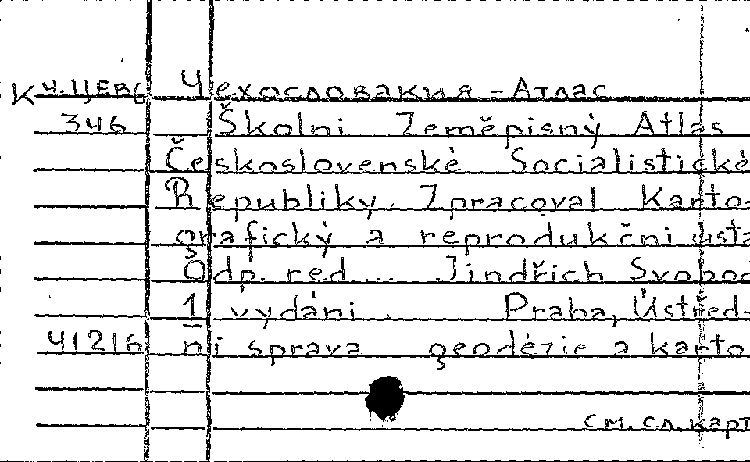 К Ч.ЦЕВ6 Чехословакия - Атлас
346 Školni Zeměpisný Atlas
Československé Socialistické
Republiky. Zpracoval Karto-
grafický a reprodukčni ústa
Odp. red... Jindřich Svobod
1 vydáni. Praha, Ústřed-
41216 ni sprava geodézie a karto-
см. сл. карт